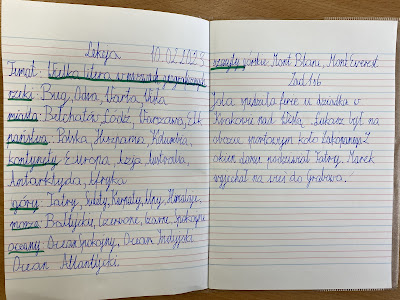 Lekcja 10.02.2023
Temat: Wielka litera w nazwach geograficznych
rzeki: Bug, Odra, Warta, Wisła
miasta: Bełchatów, Łódź, Warszawa, Ełk
państwa: Polska, Hiszpania, Kolumbia,
kontynenty: Europa, Azja, Australia,
Antarktyda, Afryka
góry: Tatry, Sudety, Karpaty, Ural, Himalaje
morza: Bałtyckie, Czerwone, Czarne, Spokojne
oceany: Ocean Spokojny, Ocean Indyjski
Ocean Atlantycki
szczyty górskie: Mont Blanc, Mont Everest
Zad 1s6
Jola spędzała ferie u dziadka w
Krakowie nad Wisłą. Łukasz był na
obozie sportowym koło Zakopanego. Z
okien domu podziwiał Tatry. Marek
wyjechał na wieś do Grabowa.